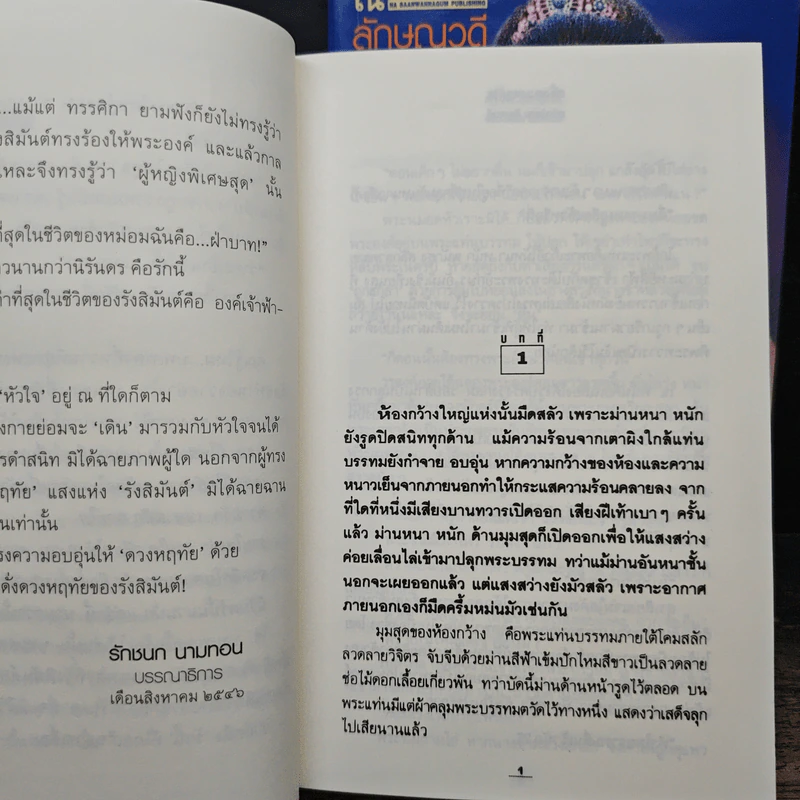 ใน
NA BAANWANNAGUM PUBLISHING
ลักษณวดี
...แม้แต่ ทรรศิกา ยามฟังก็ยังไม่ทรงรู้ว่า
งสิมันต์ทรงร้องให้พระองค์ และแล้วกาล
เหละจึงทรงรู้ว่า ‘ผู้หญิงพิเศษสุด’ นั้น
ที่สุดในชีวิตของหม่อมฉันคือ...ฝ่าบาท!”
าวนานกว่านิรันดร คือรักนี้
ค่าที่สุดในชีวิตของรังสิมันต์คือ องค์เจ้าฟ้า-
‘หัวใจ’ อยู่ ณ ที่ใดก็ตาม
งกายย่อมจะ ‘เดิน’ มารวมกับหัวใจจนได้
รดำสนิท มิได้ฉายภาพผู้ใด นอกจากผู้ทรง
ฤทัย’ แสงแห่ง ‘รังสิมันต์’ มิได้ฉายฉาน
นเท่านั้น
รงความอบอุ่นให้ ‘ดวงหฤทัย’ ด้วย
ดั่งดวงหฤทัยของรังสิมันต์!
รักชนก นามทอน
บรรณาธิการ
เดือนสิงหาคม ๒๕๔๖
บทที่
1
ห้องกว้างใหญ่แห่งนั้นมืดสลัว เพราะม่านหนา หนัก
ยังรูดปิดสนิททุกด้าน แม้ความร้อนจากเตาผิงใกล้แท่น
บรรทมยังกำจาย อบอุ่น หากความกว้างของห้องและความ
หนาวเย็นจากภายนอกทำให้กระแสความร้อนคลายลง จาก
ที่ใดที่หนึ่งมีเสียงบานทวารเปิดออก เสียงฝีเท้าเบาๆ ครั้น
แล้ว ม่านหนา หนัก ด้านมุมสุดก็เปิดออกเพื่อให้แสงสว่าง
ค่อยเลื่อนไล่เข้ามาปลุกพระบรรทม ทว่าแม้ม่านอันหนาชั้น
นอกจะเผยออกแล้ว แต่แสงสว่างยังมัวสลัว เพราะอากาศ
ภายนอกเองก็มืดครึ้มหม่นมัวเช่นกัน
มุมสุดของห้องกว้าง คือพระแท่นบรรทมภายใต้โคมสลัก
ลวดลายวิจิตร จับจีบด้วยม่านสีฟ้าเข้มปักไหมสีขาวเป็นลวดลาย
ช่อไม้ดอกเลื้อยเกี่ยวพัน ทว่าบัดนี้ม่านด้านหน้ารูดไว้ตลอด บน
พระแท่นมีแต่ผ้าคลุมพระบรรทมตวัดไว้ทางหนึ่ง แสดงว่าเสด็จลุก
ไปเสียนานแล้ว
๑